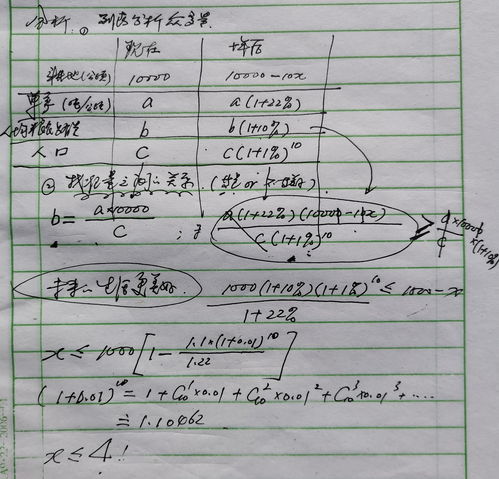 分析:① 列表分析各变量
现在 十年后
耕地(公顷) 10000 10000-10x
单产(吨/公顷) a a(1+22%)
人均粮食占有量 b b(1+10%)
人口 c c(1+1%)^10
② 找变量之间的关系.(等 or 不等)
b= a×10000/c ; a(1+22%)(10000-10x)/c(1+1%)^10 ≥ a×10000/c ×(1+10%)
生活更美好. 1000(1+10%)(1+1%)^10/1+22% ≤ 1000-x
x≤1000[1- 1.1×(1+0.01)^10/1.22]
(1+0.01)^10=1+C₁₀¹×0.01+C₁₀²×0.01²+C₁₀³×0.01³+....
≐1.10462
x≤4!